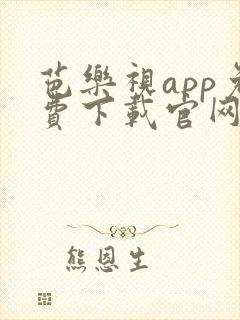 芭樂視app免
費下載官网
熊恩生